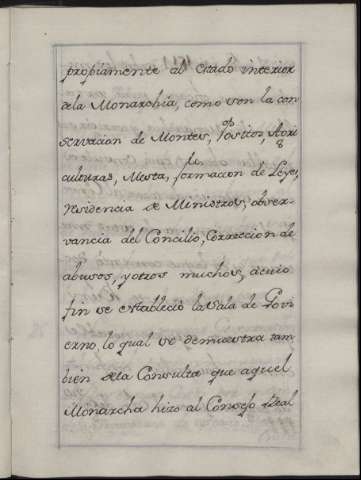 propiamente al estado interior
dela Monarchia, como son la con
servacion de Montes, Positos, Agri
culturas, Mesta, formacion de Leyes,
residencia de Ministros, obser-
vancia del Concilio, Correccion de
abusos, y otros muchos, à cuio
fin se estableciò la Sala de Govi
erno, lo qual se demuestra tam
bien dela Consulta que aquel
Monarcha hizo al Consejo Real